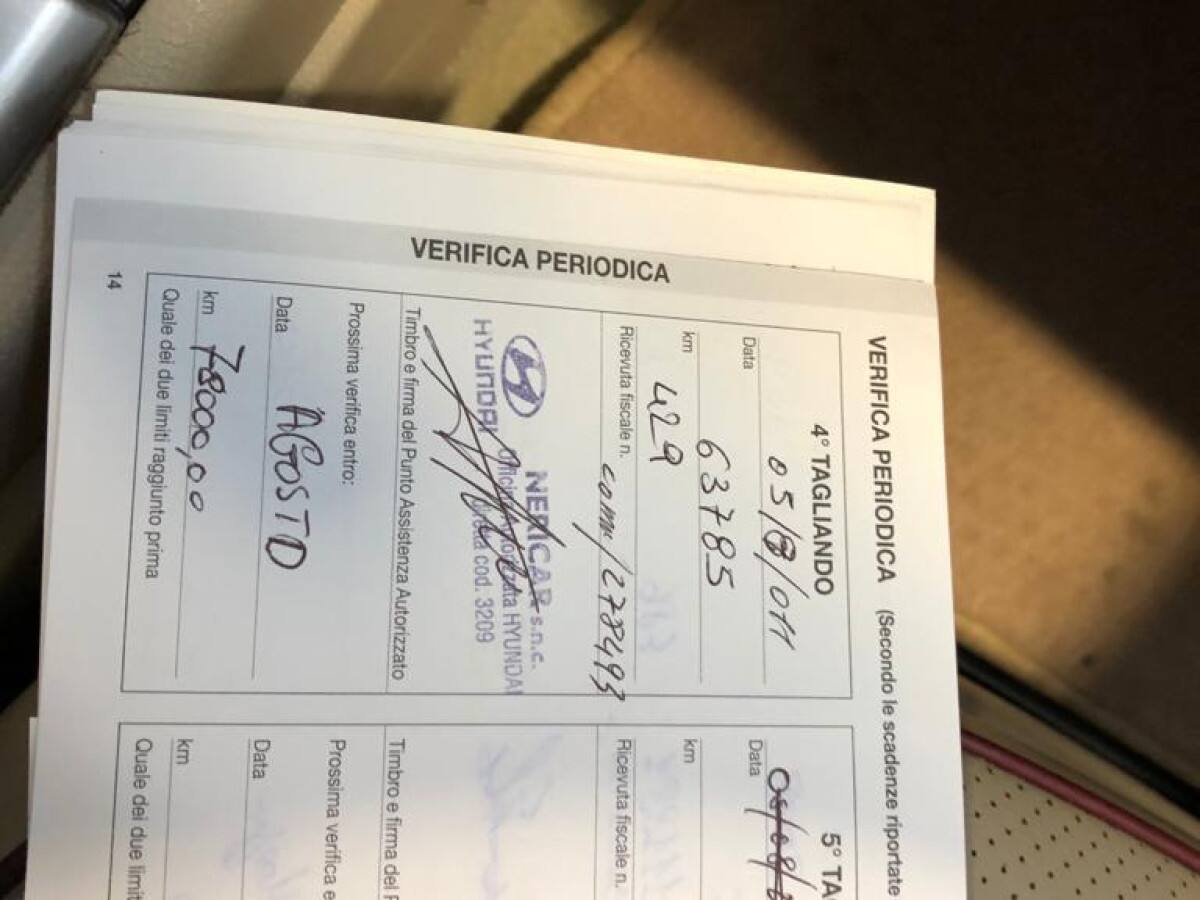 VERIFICA PERIODICA
VERIFICA PERIODICA (Secondo le scadenze riportate
4° TAGLIANDO
Data 05/08/011
km 63785
429
Ricevuta fiscale n. com/278493
HYUNDAI
NERICAR s.n.c.
Officina Autorizzata HYUNDAI
cod. 3209
Timbro e firma del Punto Assistenza Autorizzato
Prossima verifica entro:
Data AGOSTO
km 78000,00
Quale dei due limiti raggiunto prima
14
5° TA
Data
km
Ricevuta fiscale n.
Timbro e firma del P
Prossima verifica e
Data
km
Quale dei due limit